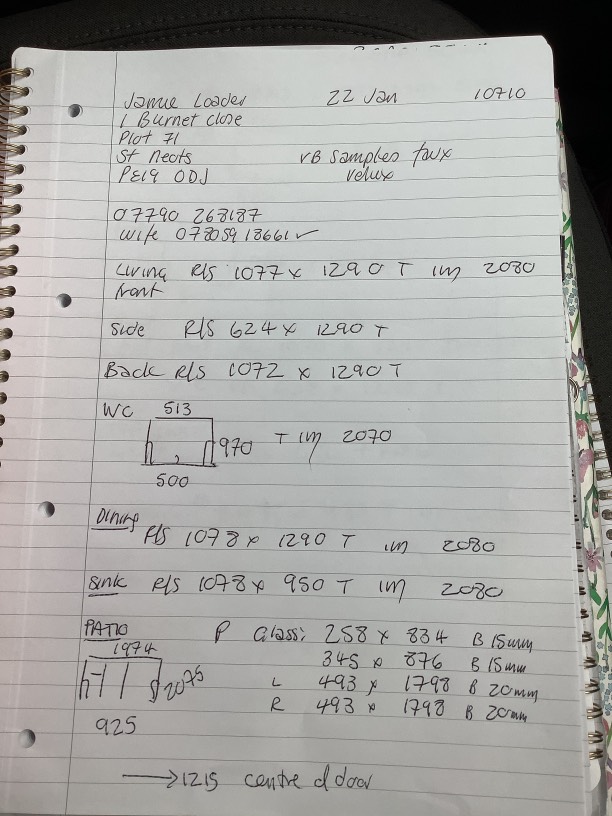 Jamie Loader 22 Jan 10710
1 Burnet close
Plot 71
St Neots VB samples faux
PE19 0DJ velux
07790 268187
wife 07805918661 ✓
Living R/S 1077 x 1290 T im 2080
front
Side R/S 624 x 1290 T
Back R/S 1072 x 1290 T
WC 513
970 T im 2070
500
Dining
R/S 1078 x 1290 T im 2080
Sink R/S 1078 x 950 T im 2080
PATIO P Glass: 258 x 834 B 15mm
1974 345 x 876 B 15mm
2075 L 493 x 1798 B 20mm
R 493 x 1798 B 20mm
925
→ 1215 centre of door